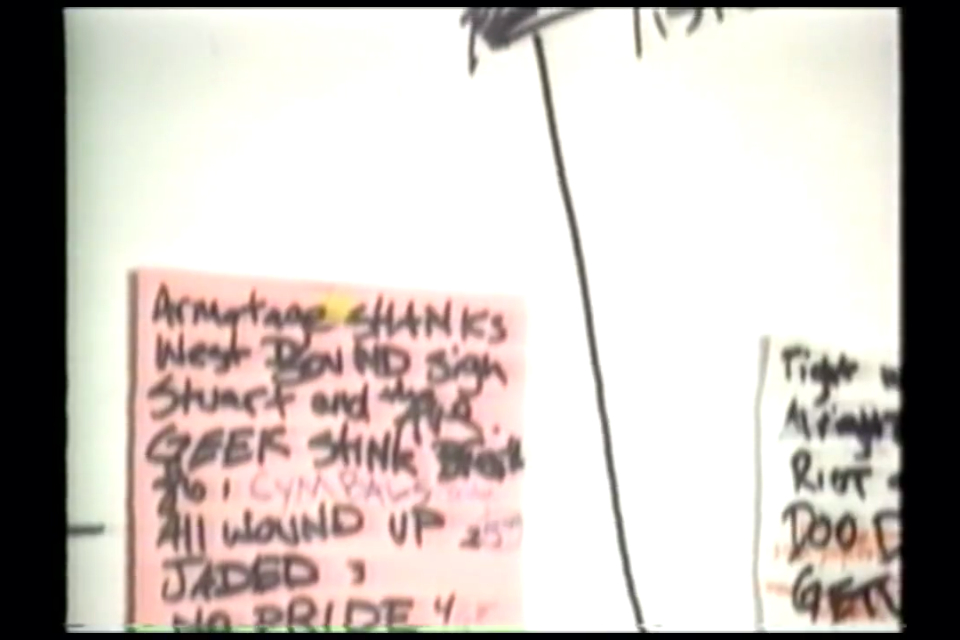 Armatage SHANKS
West BOUND sign
Stuart and the
GEEK STINK Breath
86 : CYMBALS
All WOUND UP 25
JADED ,
NO PRIDE 4
Tight
Alright
RIOT
DOO D
GETT